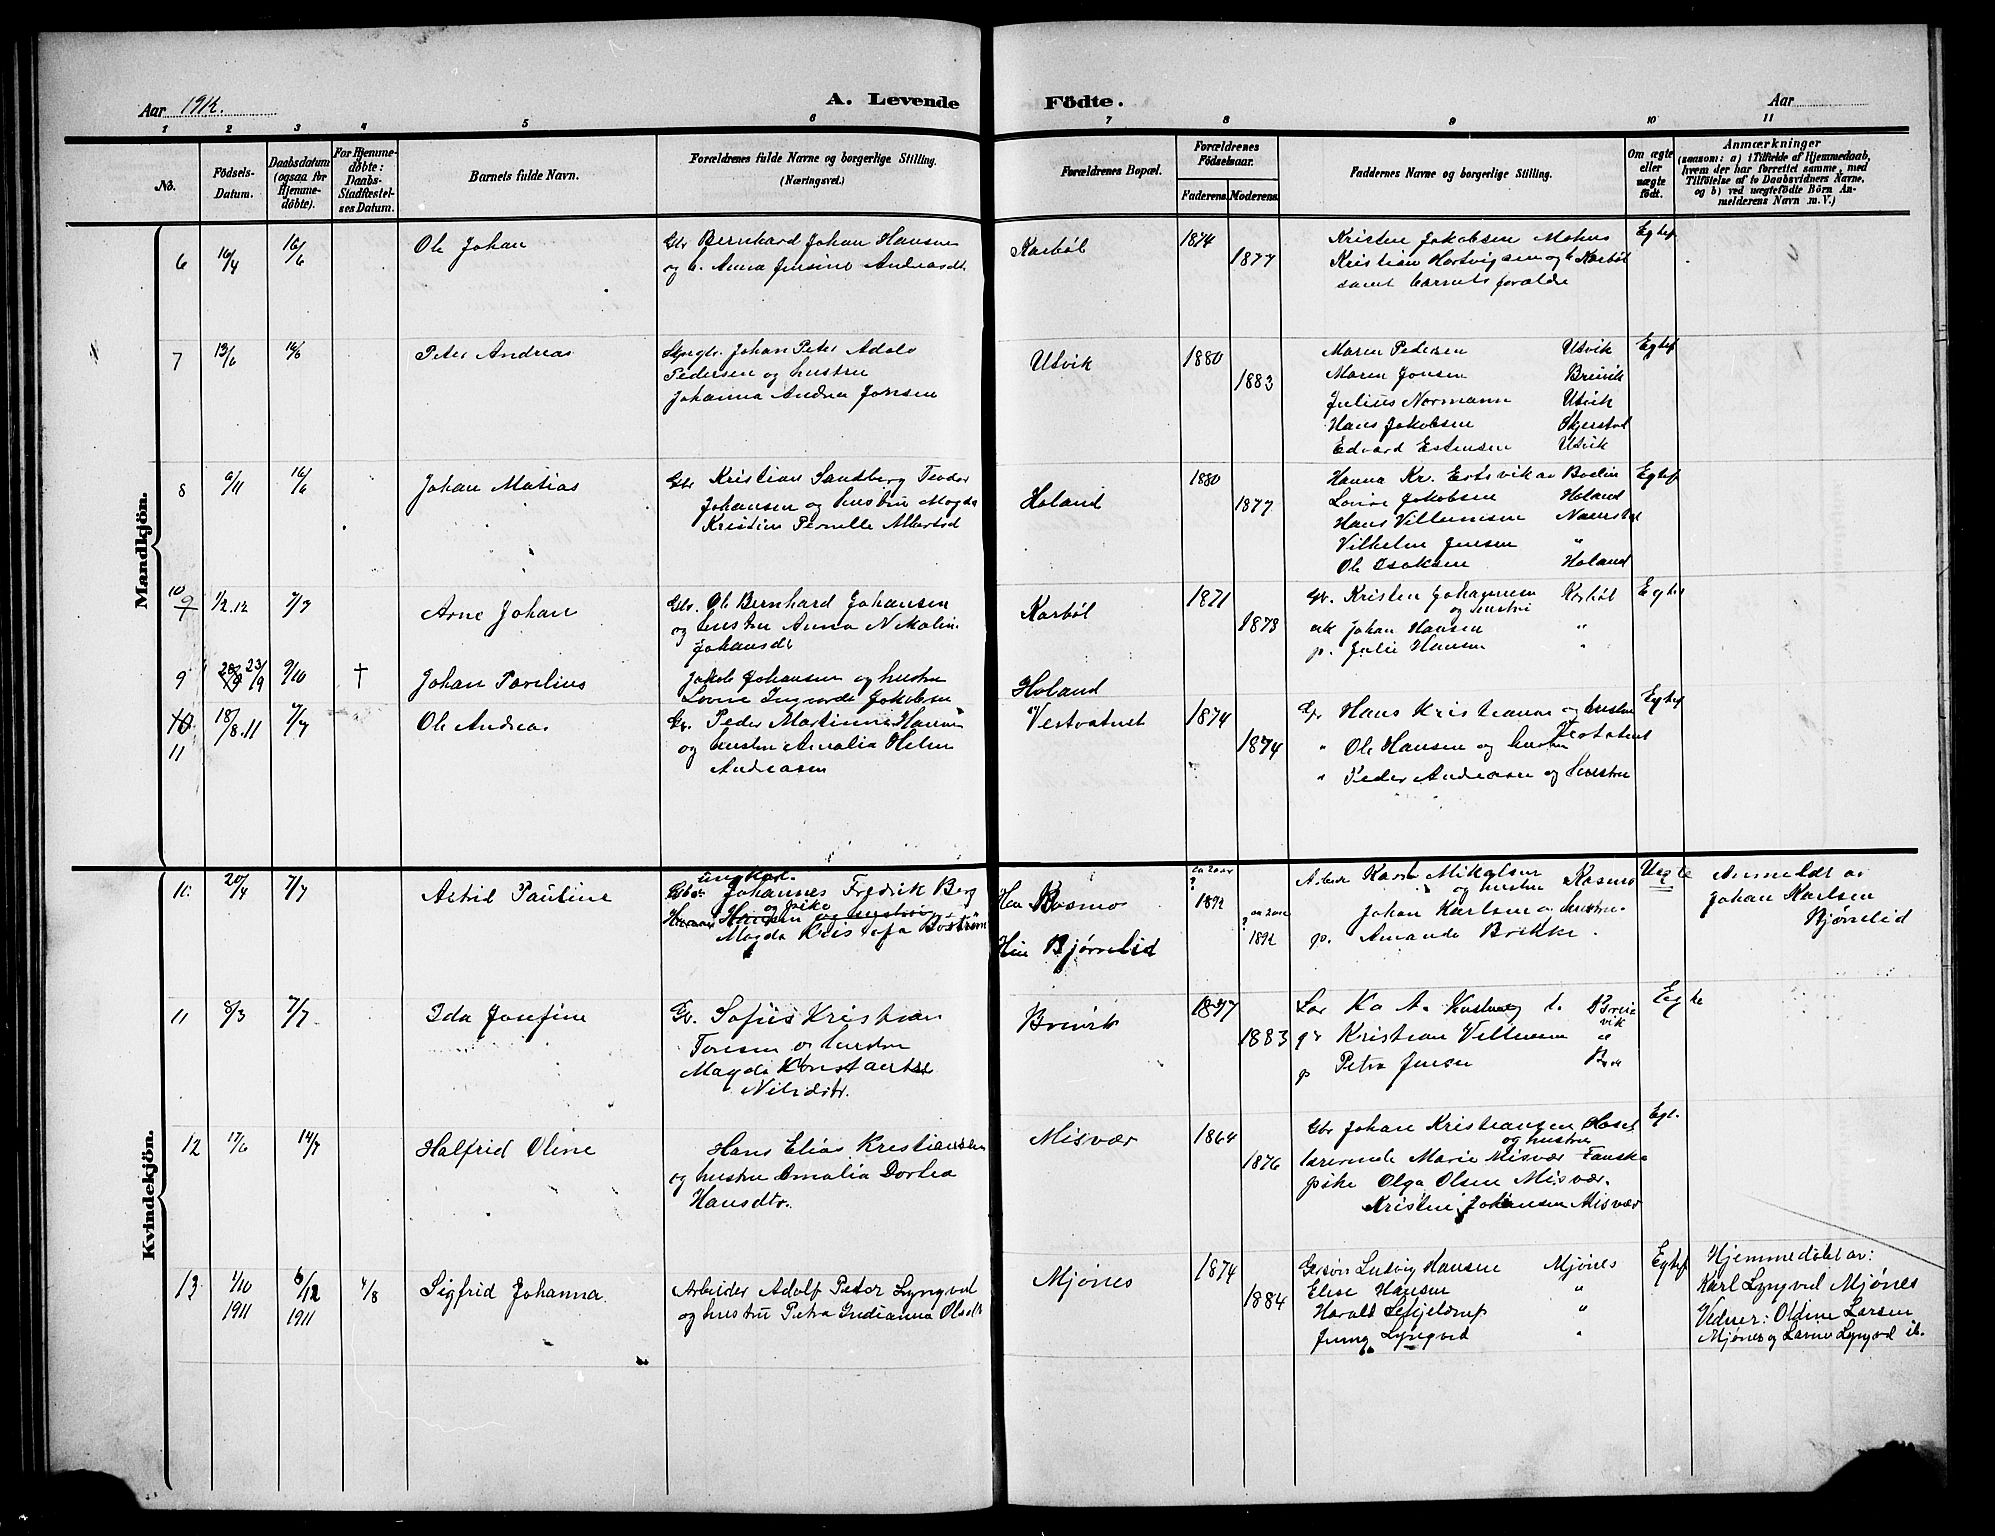 Aar 1912.
A. Levende Födte.
Aar
1 2 3 4 5 6 7 8 9 10 11
No.
Födsels-
Datum.
Daabsdatum
(ogsaa for
Hjemme-
døbte).
For Hjemme-
døbte:
Daabs-
Stadfæstel-
ses Datum.
Barnets fulde Navn.
Forældrenes fulde Navne og borgerlige Stilling.
(Næringsvei.)
Forældrenes Bopæl.
Forældrenes
Födselsaar.
Faderens. Moderens.
Faddernes Navne og borgerlige Stilling.
Om ægte
eller
uægte
födt.
Anmærkninger
(saasom: a) i Tilfælde af Hjemmedaab,
hvem der har forrettet samme, med
Tilföielse af to Daabsvidners Navne,
og b) ved uægtefödte Börn An-
melderens Navn m. V.)
Mandkjön.
6 16/4 16/6 Ole Johan
Gbr Bernhard Johan Hansen
og h. Anna Jensine Andreasdt.
Karbøl 1874 1877
Kristen Jakobsen Mohus
Kristian Hartvigsen og h Karbøl
samt barnets forældre
Egtef
7 13/6 16/6 Peter Andreas
Johan Peter Adolv
Pedersen og hustru
Johanna Andrea Jonsen
Utvik 1880 1883
Maren Pedersen Utvik
Maren Jonsen Breivik
Julius Normann Utvik
Hans Jakobsen Skjerstad
Edvard Estensen Utvik
Egtef
8 6/11 16/6 Johan Matias
Gbr Kristian Sandberg Teodor
Johansen og hustru Magda
Kristine Pernelle Albertsd
Holand 1880 1877
Hanna Kr. Bodin
Lovise Jakobsen Holand
Hans Villumsen
Vilhelm Jensen "
Ole Isaksen Holand
Egtef
10 9 1/2.12 7/7 Arne Johan
Gbr. Ole Bernhard Johansen
og hustru Anna Nikolin.
Johansdt
Karbøl 1871 1873
Gbr. Kristen Johannesen Karbøl
og hustru
Johan Hansen "
p. Julie Hansen "
Egtef
9 23/9 9/10 † Johan Parelius
Jakob Johansen og hustru
Lovise Jakobsen
Holand
10 11 18/8.11 7/7 Ole Andreas
Gbr. Peder Martinus Hansen
og hustru Amalia Helene
Andreasen
Vestvatnet 1874 1874
Gbr Hans Kristiansen og hustru
Vestvatnet
" Ole Hansen og hustru
" Peder Andreasen og hustru
Egtef
Kvindekjön.
10. 20/4 7/7 Astrid Pauline
ungkar.
Gbs. Johannes Fredrik Berg
og pike
Hansen og hustru
Magda Kristofa Boström
Han Rosmo
Hun Bjørnelid
ca 20 aar
? 1892
ca 20 aar
? 1892
Arbeider Karl Mikalsen Rosmo
og hustru
Johan Karlsen og hustru
p. Amanda Brekke.
Uegte
Anmeldt av
Johan Karlsen
Bjørnelid
11 8/3 7/7 Ida Josefine
Gbr. Sofus Kristian
Toresen og hustru
Magda Konstanse
Nilsdtr.
Breivik 1877 1883
Breivik
gbr Kristian Villumsen
p Petra Jensen
Egte
12 17/6 14/7 Halfrid Oline
Hans Elias Kristiansen
og hustru Amalia Dortea
Hansdtr.
Misvær 1864 1876
Gbr Johan Kristiansen
og hustru
lærerinde Marie Misvær Fauske
pike Olga Olsen Misvær.
Kristine Johansen Misvær
Egt.
13 1/10 1911 6/12 1911 4/8 Sigfrid Johanna
Arbeider Adolf Peter Lyngved
og hustru Petra Indianna Olsdt
Mjønes 1874 1884
Ludvig Hansen Mjønes
Elise Hansen "
Harald Schjeldrup "
Jenny Lyngved "
Egtef
Hjemmedøbt av:
Karl Lyngved Mjønes
Vidner: Oldine Larsen
Mjønes og Lyngved ib.